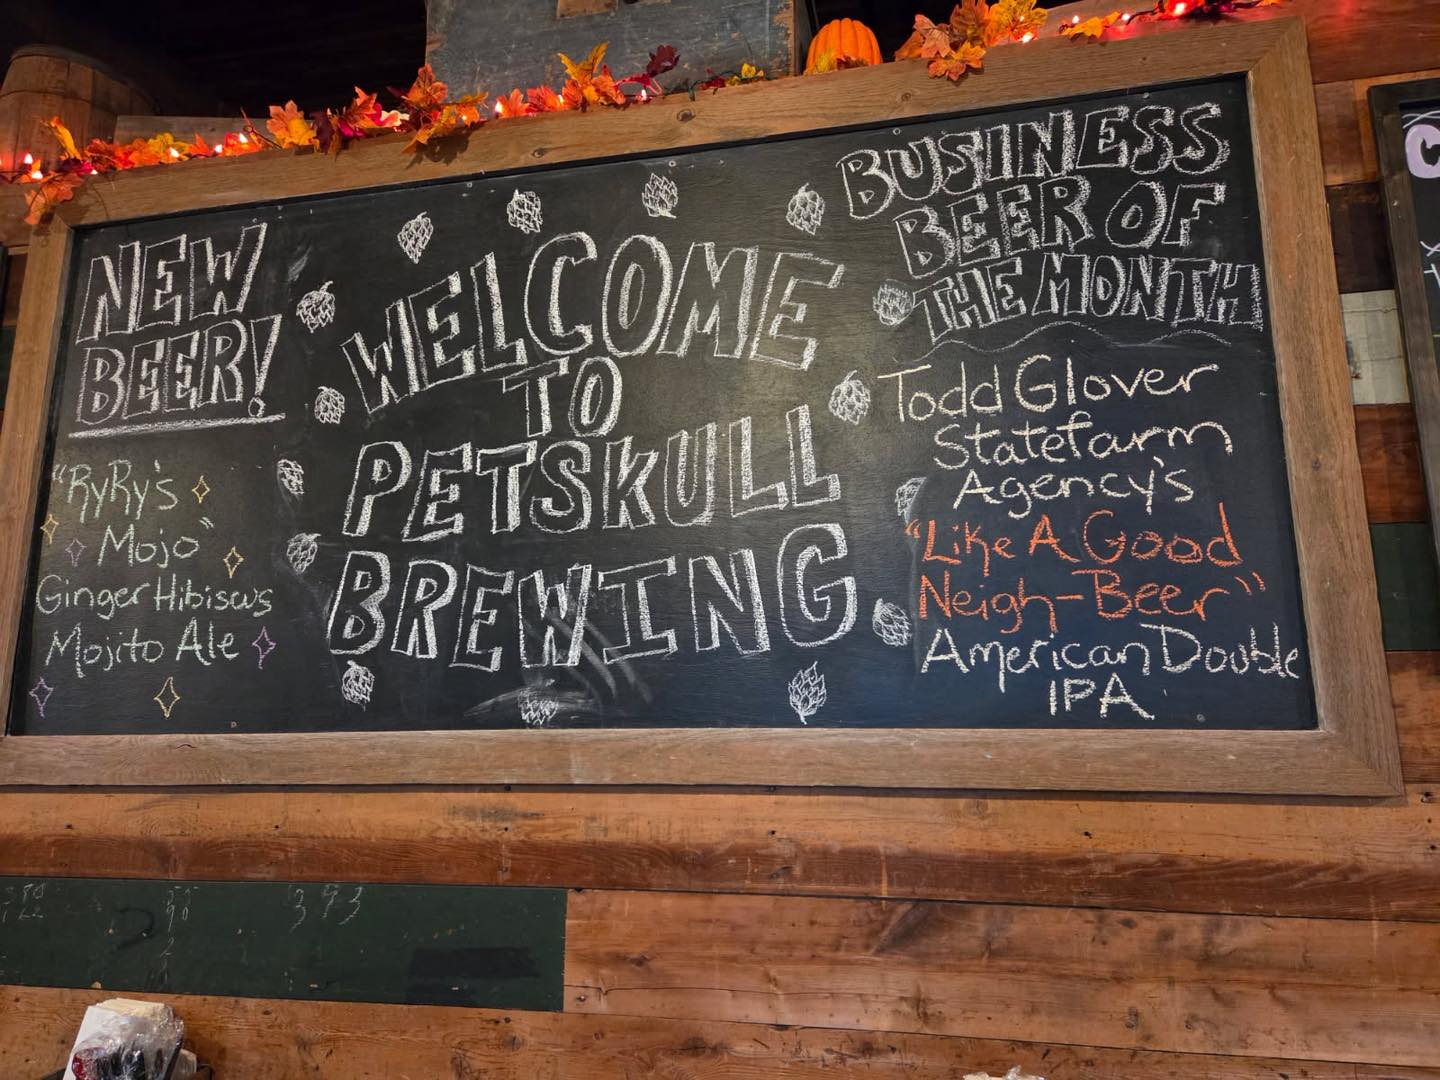 NEW
BEER!
"RyRy's
Mojo"
Ginger Hibiscus
Mojito Ale
WELCOME
TO
PETSKULL
BREWING
BUSINESS
BEER OF
THE MONTH
Todd Glover
Statefarm
Agency's
"Like A Good
Neigh-Beer"
American Double
IPA
C
393